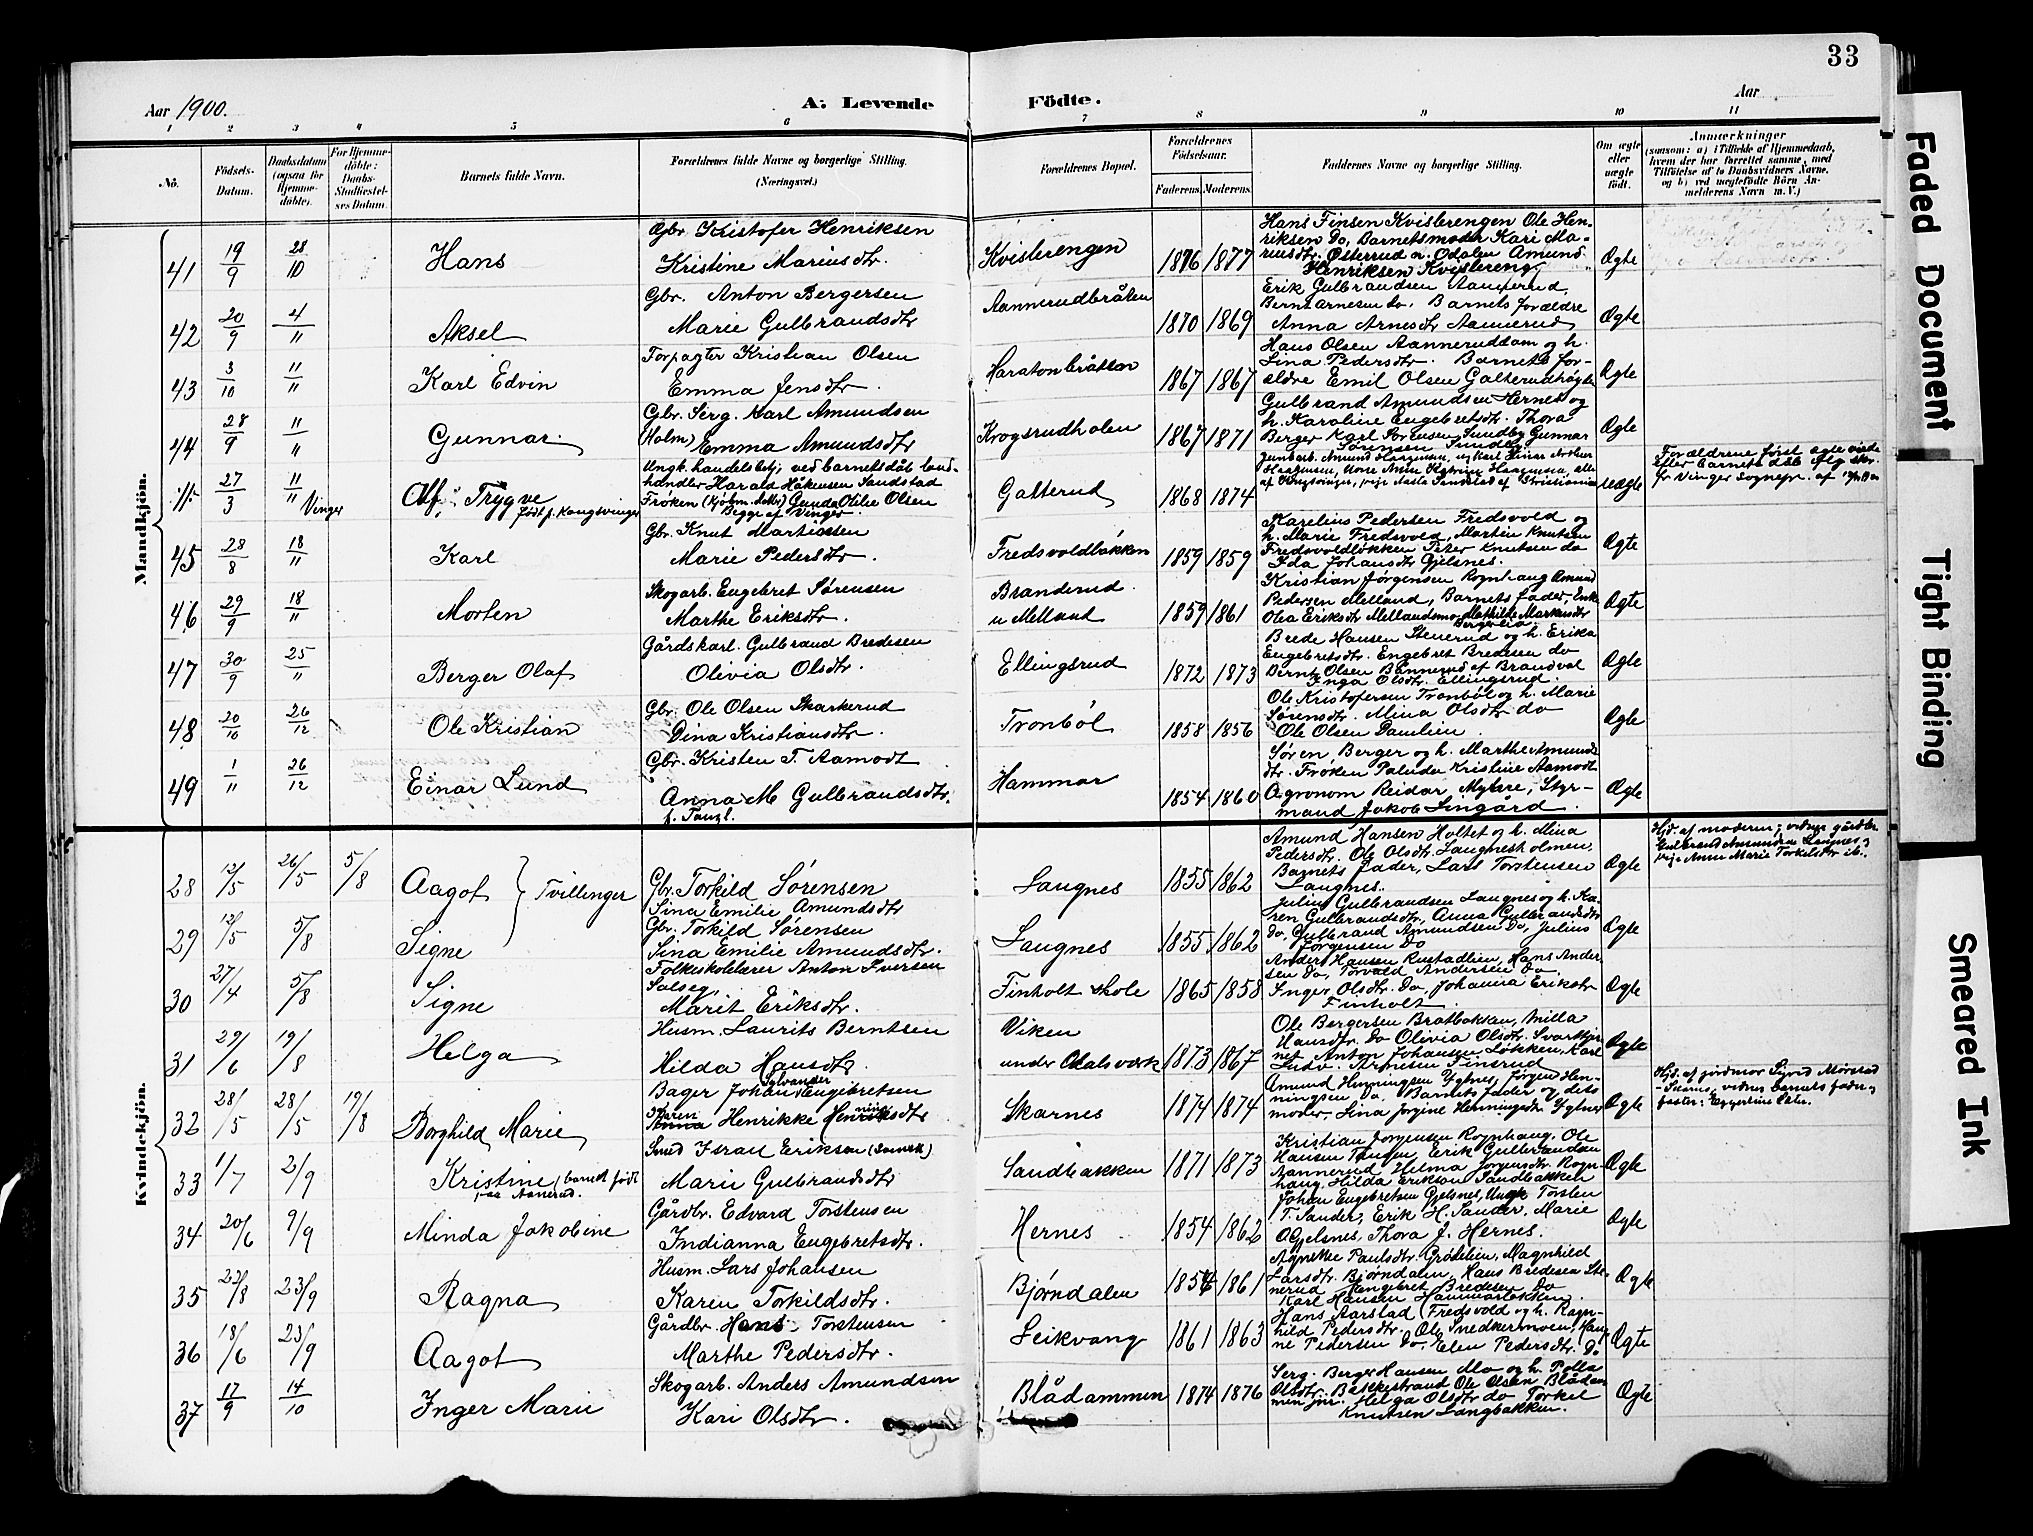 33
Aar 1900. A. Levende Födte. Aar
1 2 3 4 5 6 7 8 9 10 11
No. Födsels-Datum. Daabsdatum (ogsaa for Hjemme-döbte). For Hjemme-döbte: Daabs-Stadfæstel-ses Datum. Barnets fulde Navn. Forældrenes fulde Navne og borgerlige Stilling. (Næringsvei.) Forældrenes Bopæl. Forældrenes Födselsaar. Faderens. Moderens. Faddernes Navne og borgerlige Stilling. Om ægte eller uægte födt. Anmærkninger (saasom: a) i Tilfælde af Hjemmedaab, hvem der har forrettet samme, med Tilföielse af to Daabsvidners Navne, og b) ved uægtefödte Börn An-melderens Navn m. V.)
Mandkjön.
41 19/9 28/10 Hans Gbr. Kristofer Henriksen
Kristine Mariusdtr. Kvislerengen 1876 1877 Ægte
Hans Finsen Kvislerengen Ole Hen-
riksen Do, Barnetsmoder Kari Ma-
riusdtr. Østerud n. Odalen Amund
Henriksen Kvislereng.
42 20/9 4/11 Aksel Gbr. Anton Bergersen
Marie Gulbrandsdtr Aannerudbråten 1870 1869 Ægte
Erik Gulbrandsen Aannerud,
Bernt Arnesen do. Barnets forældre
Anna Arnesdtr Aannerud
43 3/10 11/11 Karl Edvin Forpagter Kristian Olsen
Emma Jensdtr. Haratonbråtten 1867 1867 Ægte
Hans Olsen Aanneruddam og h.
Lina Pedersdtr. Barnets for-
ældre Emil Olsen Galterudhøgda
44 28/9 11/11 Gunnar Gbr. Serg. Karl Amundsen
(Holm) Emma Amundsdtr Krogsrudholen 1867 1871 Ægte
Gulbrand Amundsen Hernes og
h. Karoline Engebretsdtr. Thora
Berger Karl Sørensen Sundby Gunnar
27/3 11/11 Vinger Alf Trygve født p. Kongsvinger
Ungk. handelsbetj; ved barnets dåb land-
handler Harald Håkensen Sandstad
Frøken (Kjøbm.datter) Gunda Otilie Olsen
Begge af Vinger. Galterud 1868 1874 uægte
Forældrene først ægteviede
efter barnets dåb
45 28/8 18/11 Karl Gbr. Knut Martinsen
Marie Pedersdtr. Fredsvoldløkken 1859 1859 Ægte
Karelius Pedersen Fredsvold og
h. Marie Fredsvold, Martin Knutsen
Fredsvoldløkken Peter Knutsen do
Ida Johansdtr Gjelsnes.
46 29/9 18/11 Morten Skogarb. Engebret Sørensen
Marthe Eriksdtr. Branderud
u Melland 1859 1861 Ægte
Kristian Jørgensen Rognhaug Amund
Pedersen Melland, Barnets fader, Enke
Olea Eriksdtr Mellandsmo, Mathilde Markusdtr
47 30/9 25/11 Berger Olaf Gårdskarl. Gulbrand Bredesen
Olivia Olsdtr. Ellingsrud 1872 1873 Ægte
Brede Hansen Stenerud og h. Erika
Engebretsdtr. Engebret Bredesen do
Bernt Olsen Bennerud af Brandval
Inga Olsdtr. Ellingsrud.
48 20/10 26/12 Ole Kristian Gbr. Ole Olsen Skarkerud
Dina Kristiansdtr. Tronbøl 1858 1856 Ægte
Ole Kristofersen Tronbøl og h. Marie
Sørensdtr. Mina Olsdtr do
Ole Olsen Damlien
49 1/11 26/12 Einar Lund Gbr. Kristen T. Aamodt
Anna M Gulbrandsdtr.
f. Tangl. Hammar 1854 1860 Ægte
Søren Berger og h. Marthe Amunds
dtr. Frøken Paluda Kristine Aamodt
Agronom Reidar Myhre, Styr-
mand Jakob Lingård.
Kvindekjön.
28 12/5 26/5 5/8 Aagot } Tvillinger Gbr. Torkild Sørensen
Sina Emilie Amundsdtr Langnes 1855 1862 Ægte
Amund Hansen Holtet og h. Mina
Pedersdtr. Ole Olsdtr. Langnesholmen,
Barnets fader, Lars Torstensen
Langnes.
Hjd. af moderen; vidner gårdbr.
Gulbrand Amundsen Langnes og
pige Anne Marie Torkelsdtr ib.
29 12/5 5/8 Signe Gbr. Torkild Sørensen
Sina Emilie Amundsdtr. Langnes 1855 1862 Ægte
Julius Gulbrandsen Langnes og h. Ka-
ren Gulbrandsdtr, Anna Gulbrandsdtr
do, Gulbrand Amundsen Do, Julius
Jørgensen Do
30 27/4 5/8 Signe Folkeskolelærer Anton Iversen
Solseg,
Marit Eriksdtr. Finholt skole 1865 1858 Ægte
Anders Hansen Rustadlien, Hans Ander-
sen Do, Torvald Andersen Do.
Inger Olsdtr. Do, Johanna Eriksdtr
Finholt
31 29/6 19/8 Helga Husm. Laurits Berntsen
Hilda Hansdtr. Viken
under Odalsværk 1873 1867 Ægte
Ole Bergersen Bratbakken, Milla
Hansdtr. Do Olivia Olsdtr. Svarttjer-
net Anton Johansen Løkken, Karl
Ludv. Arnesen Finsrud
32 28/5 28/5 19/8 Borghild Marie Bager Johan Sylvander Engebretsen
Karen Henrikke Henningsdtr Skarnes 1874 1874 Ægte
Amund Henningsen Ygtnes, Jørgen Hen-
ningsen Do, Barnets fader og dets
moder, Lina Jorgine Henningsdtr Ygtnes
Hjd. af jordmor Sigrid Mørstad
33 1/7 2/9 Kristine (barnet født
paa Aanerud. Smed Israel Erikson (svensk)
Marie Gulbrandsdtr Sandbakken 1871 1873 Ægte
Kristian Jørgensen Rognhaug, Ole
Hansen Tangen, Erik Gulbrandsen
Aannerud Helma Jørgensdtr Rogn-
haug, Hilda Erikson Sandbakken
34 20/6 9/9 Minda Jakobine Gårdbr. Edvard Torstensen
Indianna Engebretsdtr. Hernes 1854 1862 Ægte
Johan Engebretsen Gjelsnes, Ungk Torsten
T. Sander, Erik H. Sander, Marie
O Gjelsnes, Thora J. Hernes.
35 22/8 23/9 Ragna Husm. Lars Johansen
Karen Torkildsdtr. Bjørndalen 1854 1861 Ægte
Agnethe Paulsdtr. Grødalien, Magnhild
Larsdtr. Bjørndalen, Hans Bredesen Ste-
nerud Engebret Bredesen Do
Karl Hansen Hammarbakken.
36 18/6 23/9 Aagot Gårdbr. Hans Torstensen
Marthe Pedersdtr. Leikvang 1861 1863 Ægte
Hans Aarstad Fredsvold og h. Ragn-
hild Pedersdtr. Ole Snedkermoen, Han-
ne Pedersen Do, Elen Pedersdtr. Do
37 17/9 14/10 Inger Marie Skogarb. Anders Amundsen
Kari Olsdtr. Blådammen 1874 1876 Ægte
Serg. Berger Hansen Mo og h. Polla
Olsdtr. Bakkestrand Ole Olsen Blådam
men jnr. Helga Olsdtr do Torkel
Knutsen Langbakken.
Faded Document
Tight Binding
Smeared Ink